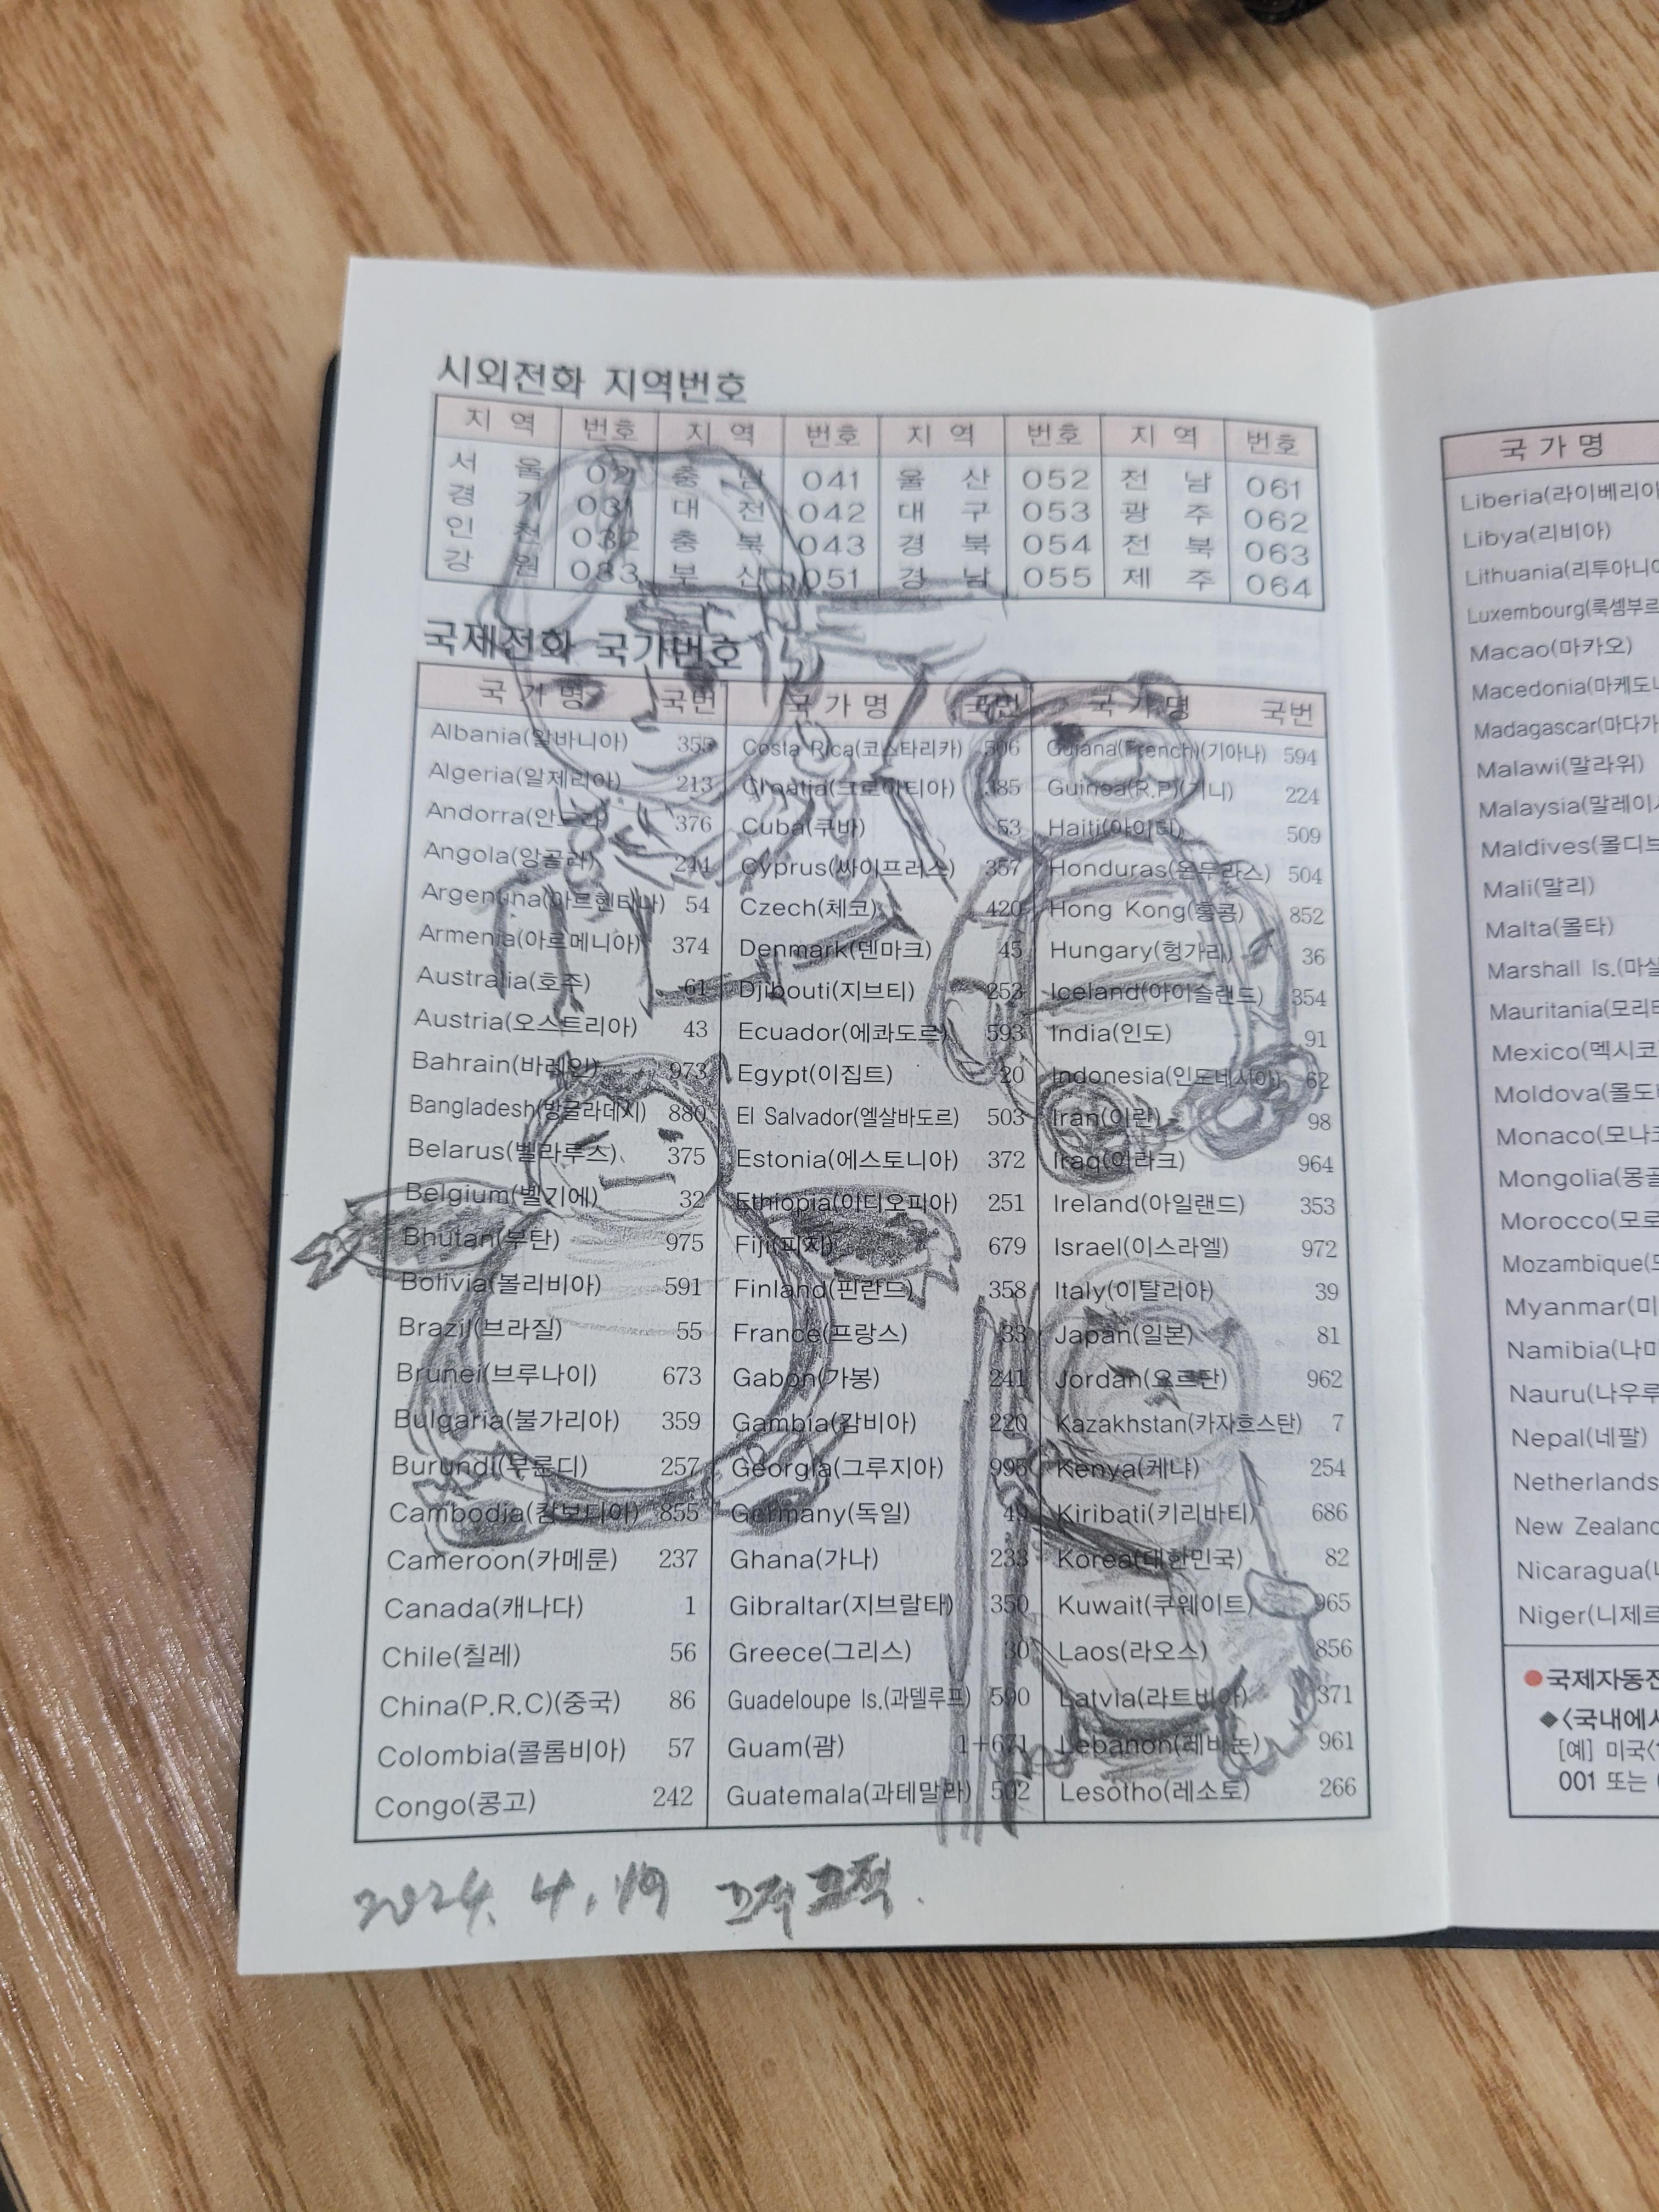 시외전화 지역번호
지 역 번호 지 역 번호 지 역 번호 지 역 번호
서 울 02 충 남 041 울 산 052 전 남 061
경 기 031 대 전 042 대 구 053 광 주 062
인 천 032 충 북 043 경 북 054 전 북 063
강 원 033 부 산 051 경 남 055 제 주 064
국제전화 국가번호
국 가 명 국번 국 가 명 국번 국 가 명 국번
Albania(알바니아) 355 Costa Rica(코스타리카) 506 Guiana(French)(기아나) 594
Algeria(알제리아) 213 Croatia(크로아티아) 385 Guinea(R.P)(기니) 224
Andorra(안도라) 376 Cuba(쿠바) 53 Haiti(아이티) 509
Angola(앙골라) 244 Cyprus(싸이프러스) 357 Honduras(온두라스) 504
Argentina(아르헨티나) 54 Czech(체코) 420 Hong Kong(홍콩) 852
Armenia(아르메니아) 374 Denmark(덴마크) 45 Hungary(헝가리) 36
Australia(호주) 61 Djibouti(지브티) 253 Iceland(아이슬랜드) 354
Austria(오스트리아) 43 Ecuador(에콰도르) 593 India(인도) 91
Bahrain(바레인) 973 Egypt(이집트) 20 Indonesia(인도네시아) 62
Bangladesh(방글라데시) 880 El Salvador(엘살바도르) 503 Iran(이란) 98
Belarus(벨라루스) 375 Estonia(에스토니아) 372 Iraq(이라크) 964
Belgium(벨기에) 32 Ethiopia(이디오피아) 251 Ireland(아일랜드) 353
Bhutan(부탄) 975 Fiji(피지) 679 Israel(이스라엘) 972
Bolivia(볼리비아) 591 Finland(핀란드) 358 Italy(이탈리아) 39
Brazil(브라질) 55 France(프랑스) 33 Japan(일본) 81
Brunei(브루나이) 673 Gabon(가봉) 241 Jordan(요르단) 962
Bulgaria(불가리아) 359 Gambia(감비아) 220 Kazakhstan(카자흐스탄) 7
Burundi(부룬디) 257 Georgia(그루지아) 995 Kenya(케냐) 254
Cambodia(캄보디아) 855 Germany(독일) 49 Kiribati(키리바티) 686
Cameroon(카메룬) 237 Ghana(가나) 233 Korea(대한민국) 82
Canada(캐나다) 1 Gibraltar(지브랄타) 350 Kuwait(쿠웨이트) 965
Chile(칠레) 56 Greece(그리스) 30 Laos(라오스) 856
China(P.R.C)(중국) 86 Guadeloupe Is.(과델루프) 590 Latvia(라트비아) 371
Colombia(콜롬비아) 57 Guam(괌) 1+671 Lebanon(레바논) 961
Congo(콩고) 242 Guatemala(과테말라) 502 Lesotho(레소토) 266
2024. 4. 19 끄적끄적.
국 가 명
Liberia(라이베리아
Libya(리비아)
Lithuania(리투아니아
Luxembourg(룩셈부르
Macao(마카오)
Macedonia(마케도니
Madagascar(마다가
Malawi(말라위)
Malaysia(말레이시
Maldives(몰디브
Mali(말리)
Malta(몰타)
Marshall Is.(마샬
Mauritania(모리타
Mexico(멕시코
Moldova(몰도바
Monaco(모나코
Mongolia(몽골
Morocco(모로
Mozambique(모
Myanmar(미
Namibia(나미
Nauru(나우루
Nepal(네팔)
Netherlands
New Zealand
Nicaragua(니
Niger(니제르
●국제자동전
◆<국내에서
[예] 미국<1
001 또는